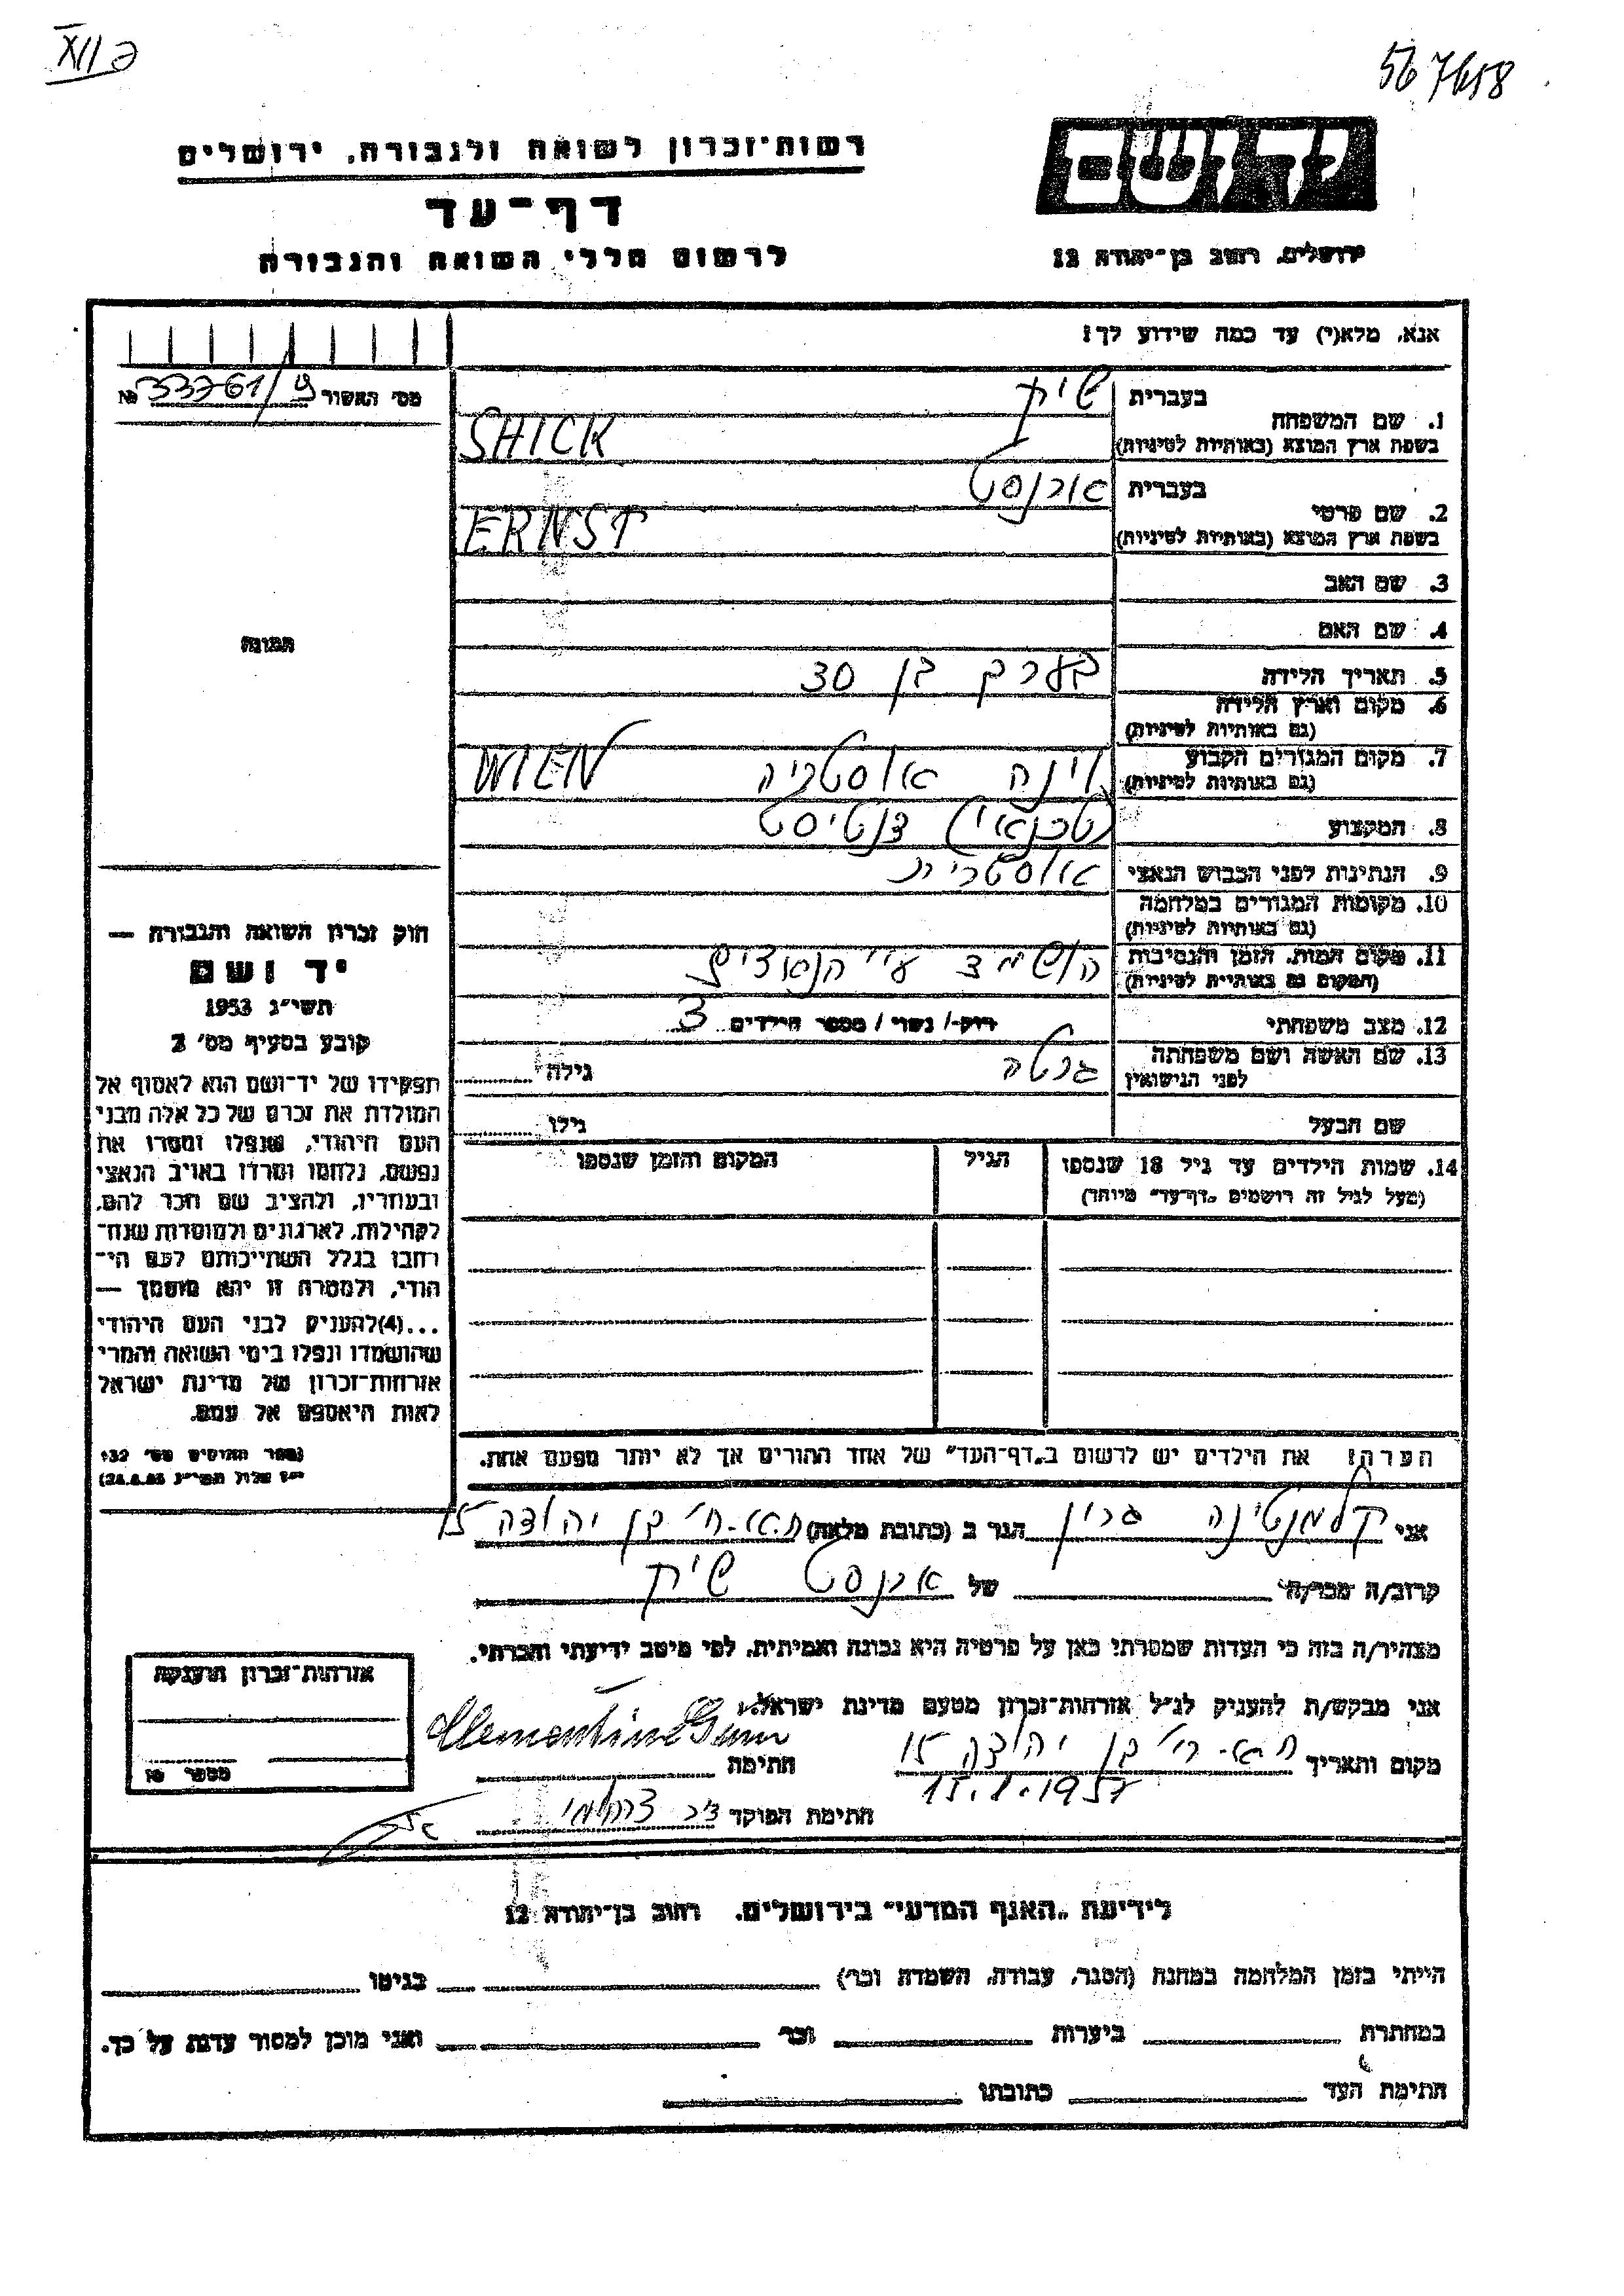 XII ט
567658
רשות־זכרון לשואה ולגבורה, ירושלים
דף־עד
לרשום חללי השואה והגבורה
יד ושם
ירושלים, רחוב בן־יהודה 12
אנא, מלא(י) עד כמה שידוע לך!
מס׳ האשור № 333761/9
1. שם המשפחה
בעברית שיק
בשפת ארץ המוצא (באותיות לטיניות) SHICK
2. שם פרטי
בעברית ארנסט
בשפת ארץ המוצא (באותיות לטיניות) ERNST
3. שם האב
4. שם האם
תמונה
5. תאריך הלידה בערך בן 30
6. מקום וארץ הלידה
(גם באותיות לטיניות)
7. מקום המגורים הקבוע וינה אוסטריה WIEN
(גם באותיות לטיניות)
8. המקצוע (טכנאי) דנטיסט
9. הנתינות לפני הכבוש הנאצי אוסטרית
10. מקומות המגורים במלחמה
(גם באותיות לטיניות)
11. מקום המות, הזמן והנסיבות הושמד ע״י הנאצים
(המקום גם באותיות לטיניות)
12. מצב משפחתי רוק/ נשוי / מספר הילדים 3
13. שם האשה ושם משפחתה גרטה גילה
לפני הנישואין
שם הבעל גילו
14. שמות הילדים עד גיל 18 שנספו הגיל המקום והזמן שנספו
(מעל לגיל זה רושמים „דף־עד״ מיוחד)
חוק זכרון השואה והגבורה —
יד ושם
תשי״ג 1953
קובע בסעיף מס׳ 2
תפקידו של יד־ושם הוא לאסוף אל
המולדת את זכרם של כל אלה מבני
העם היהודי, שנפלו ומסרו את
נפשם, נלחמו ומרדו באויב הנאצי
ובעוזריו, ולהציב שם וזכר להם,
לקהילות, לארגונים ולמוסדות שנח־
רבו בגלל השתייכותם לעם הי־
הודי, ולמטרה זו יהא מוסמך —
...(4)להעניק לבני העם היהודי
שהושמדו ונפלו בימי השואה והמרי
אזרחות־זכרון של מדינת ישראל
לאות היאספם אל עמם.
(ספר החוקים מס׳ 132
הערה! את הילדים יש לרשום ב„דף־העד״ של אחד ההורים אך לא יותר מפעם אחת.
אני קלמנטינה גרין הגר ב (כתובת מלאה) ת.א. רח׳ בן יהודה 15
קרוב/ה מכר/ה של ארנסט שיק
מצהיר/ה בזה כי העדות שמסרתי כאן על פרטיה היא נכונה ואמיתית, לפי מיטב ידיעתי והכרתי.
אני מבקש/ת להעניק לנ״ל אזרחות־זכרון מטעם מדינת ישראל.
מקום ותאריך ת.א. רח׳ בן יהודה 15 חתימה Clementine Grün
15.1.1957
חתימת הפוקד
אזרחות־זכרון הוענקה
מספר סו
לידיעת „האגף המדעי״ בירושלים, רחוב בן־יהודה 12
הייתי בזמן המלחמה במחנה (הסגר, עבודה, השמדה וכו׳) בגיטו
במחתרת ביערות וכו׳ ואני מוכן למסור עדות על כך.
חתימת העד כתובתו